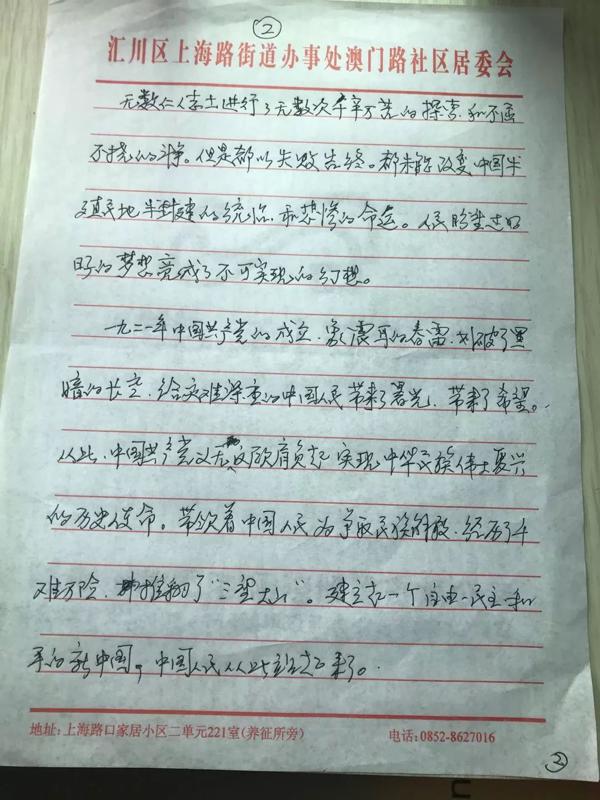 ②
汇川区上海路街道办事处澳门路社区居委会
无数仁人志士进行了无数次千辛万苦的探索和不屈
不挠的斗争。但是都以失败告终。都未能改变中国半
殖民地半封建的统治和悲惨的命运。人民盼望过好
日子的梦想竟成了不可实现的幻想。
一九二一年中国共产党的成立，象震耳的春雷，划破了黑
暗的长空，给灾难深重的中国人民带来了曙光，带来了希望。
从此，中国共产党义无反顾肩负起实现中华民族伟大复兴
的历史使命。带领着中国人民为争取民族解放，经历了千
难万险，推翻了“三座大山”。建立起一个自由民主和
平的新中国，中国人民从此站起来了。
地址：上海路口家居小区二单元221室(养征所旁)
电话：0852-8627016
②